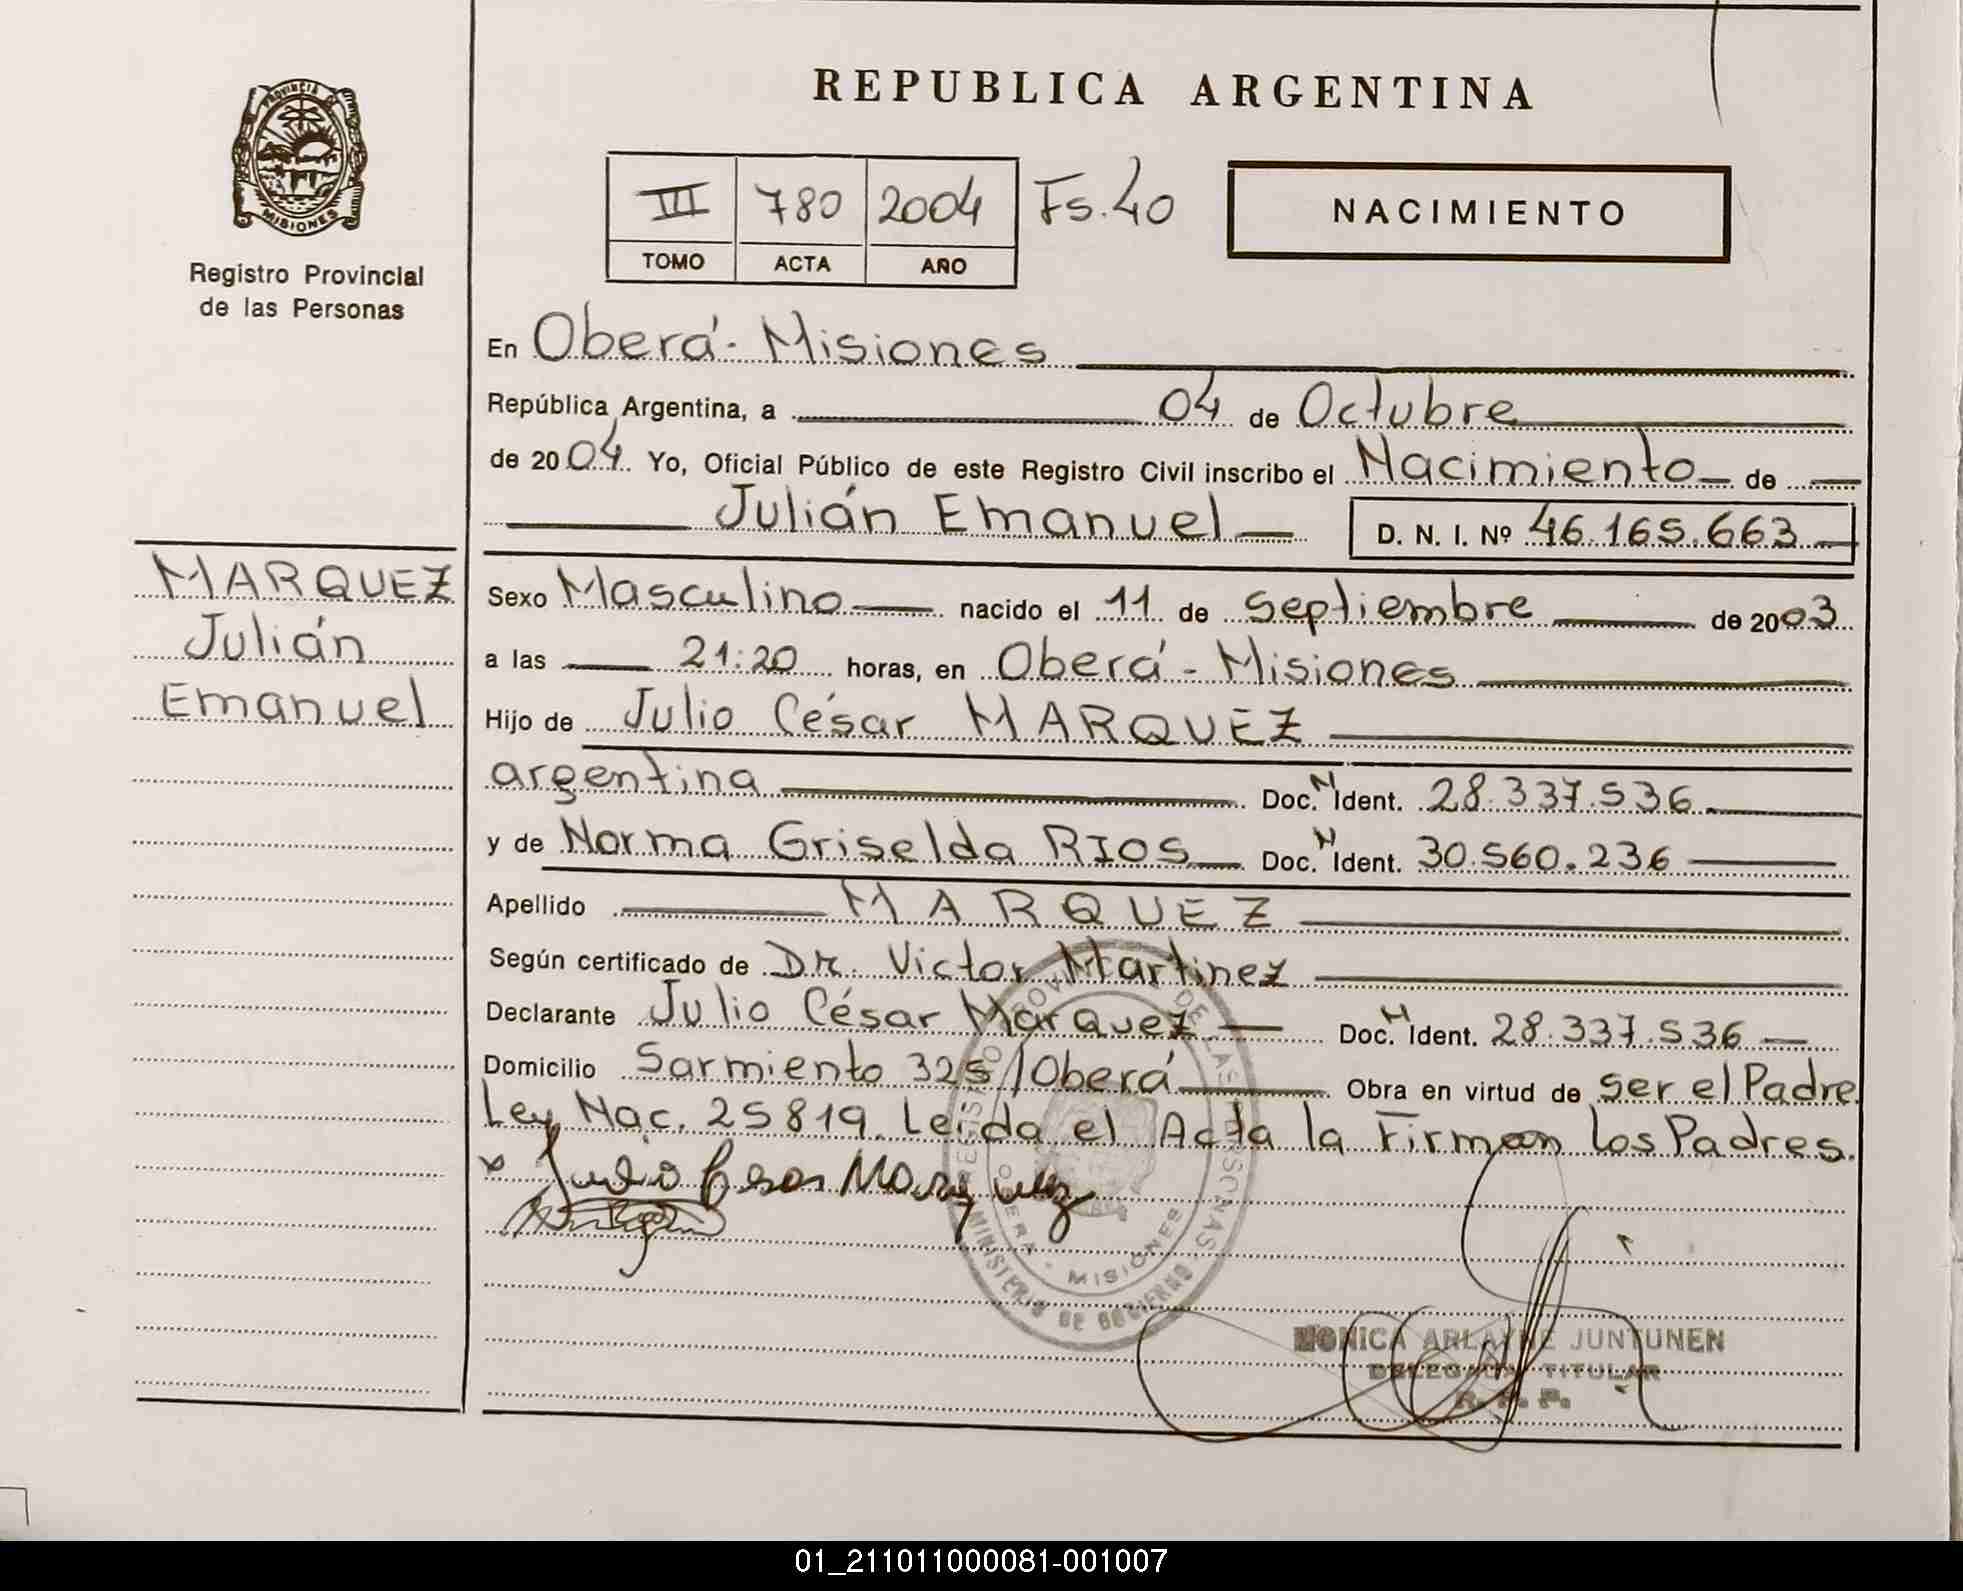 REPUBLICA ARGENTINA
PROVINCIA DE
MISIONES
Registro Provincial
de las Personas
III 780 2004 Fs. 40
TOMO ACTA AÑO
NACIMIENTO
En Oberá - Misiones
República Argentina, a 04 de Octubre
de 2004. Yo, Oficial Público de este Registro Civil inscribo el Nacimiento de
Julián Emanuel D. N. I. Nº 46.165.663
MARQUEZ
Julián
Emanuel
Sexo Masculino nacido el 11 de septiembre de 2003
a las 21:20 horas, en Oberá - Misiones
Hijo de Julio César MARQUEZ
argentina Doc. N Ident. 28.337.536
y de Norma Griselda RIOS Doc. N Ident. 30.560.236
Apellido MARQUEZ
Según certificado de Dr. Victor Martinez
Declarante Julio César Marquez Doc. N Ident. 28.337.536
Domicilio Sarmiento 325 / Oberá Obra en virtud de ser el Padre
Ley Nac. 25819. Leída el Acta la Firman los Padres.
x Julio Cesar Marquez
REGISTRO PROVINCIAL DE LAS PERSONAS
MINISTERIO DE GOBIERNO
OBERA - MISIONES
MONICA ARLAYNE JUNTUNEN
DELEGADA TITULAR
R. P. P.
01_211011000081-001007